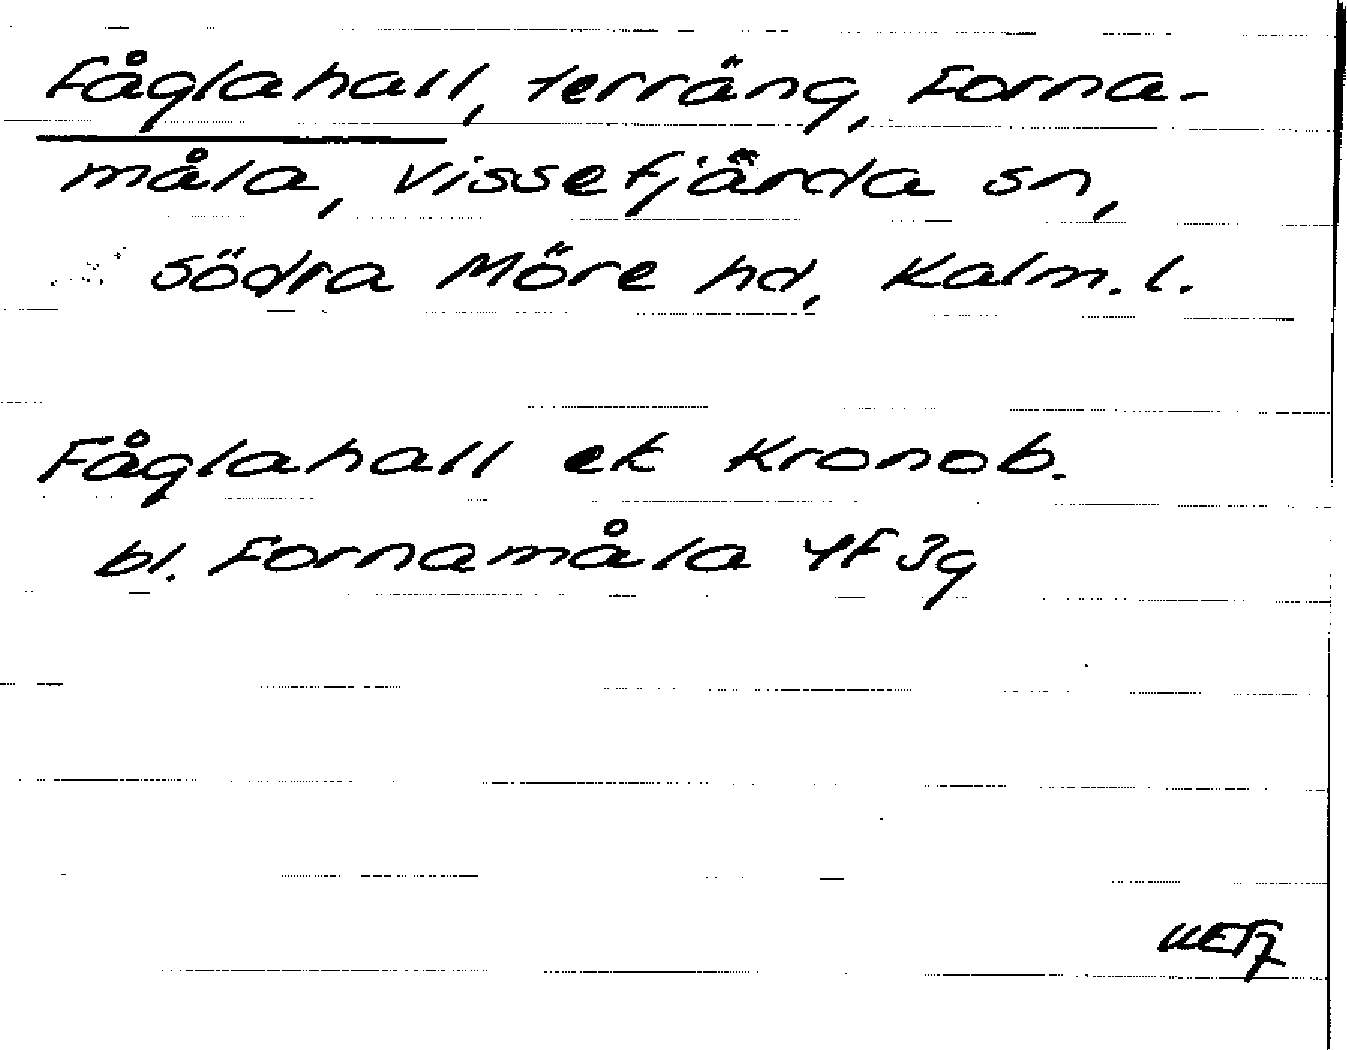 Fåglahall, terräng, Forna-
måla, Vissefjärda sn,
Södra Möre hd, Kalm. l.
Fåglahall ek Kronob.
bl. Fornamåla 4F 3g